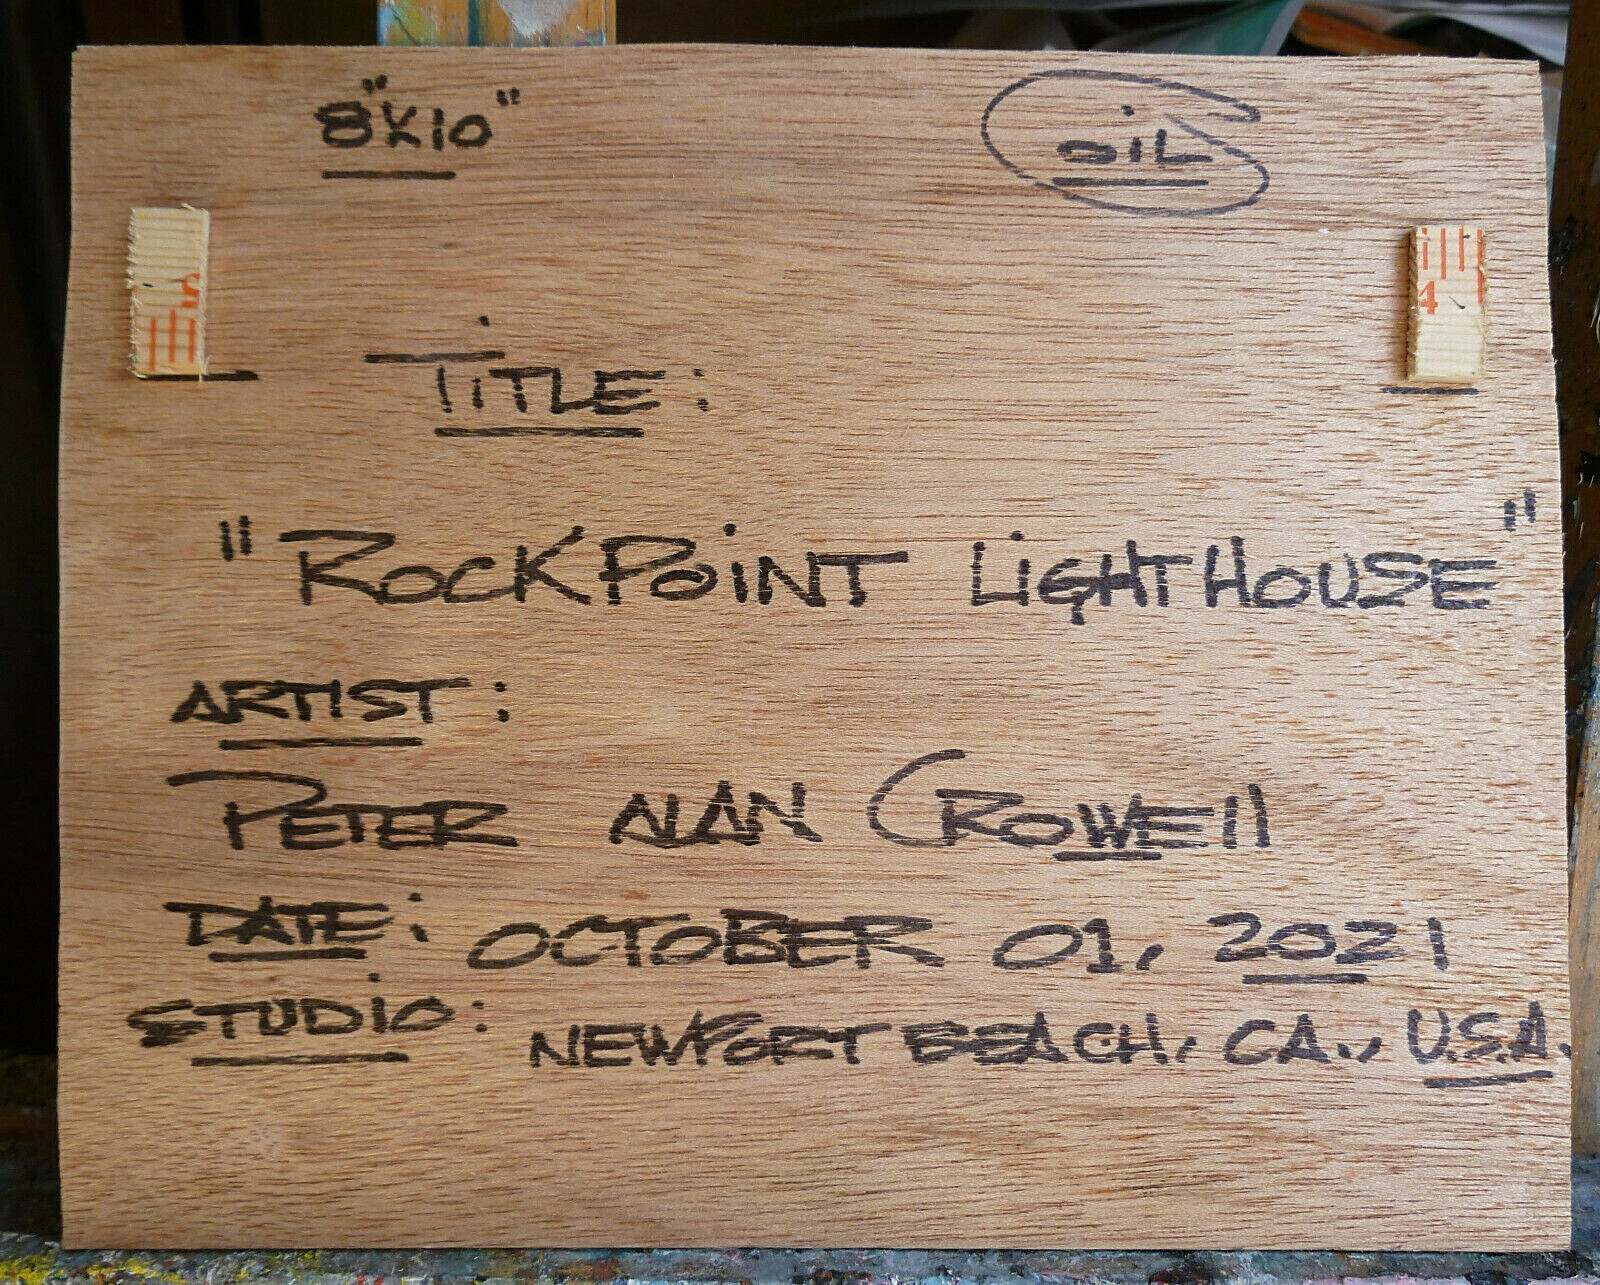 8"X10"
OIL
5
4
TITLE:
"ROCKPOINT LIGHTHOUSE"
ARTIST:
PETER ALAN CROWELL
DATE: OCTOBER 01, 2021
STUDIO: NEWPORT BEACH, CA., U.S.A.